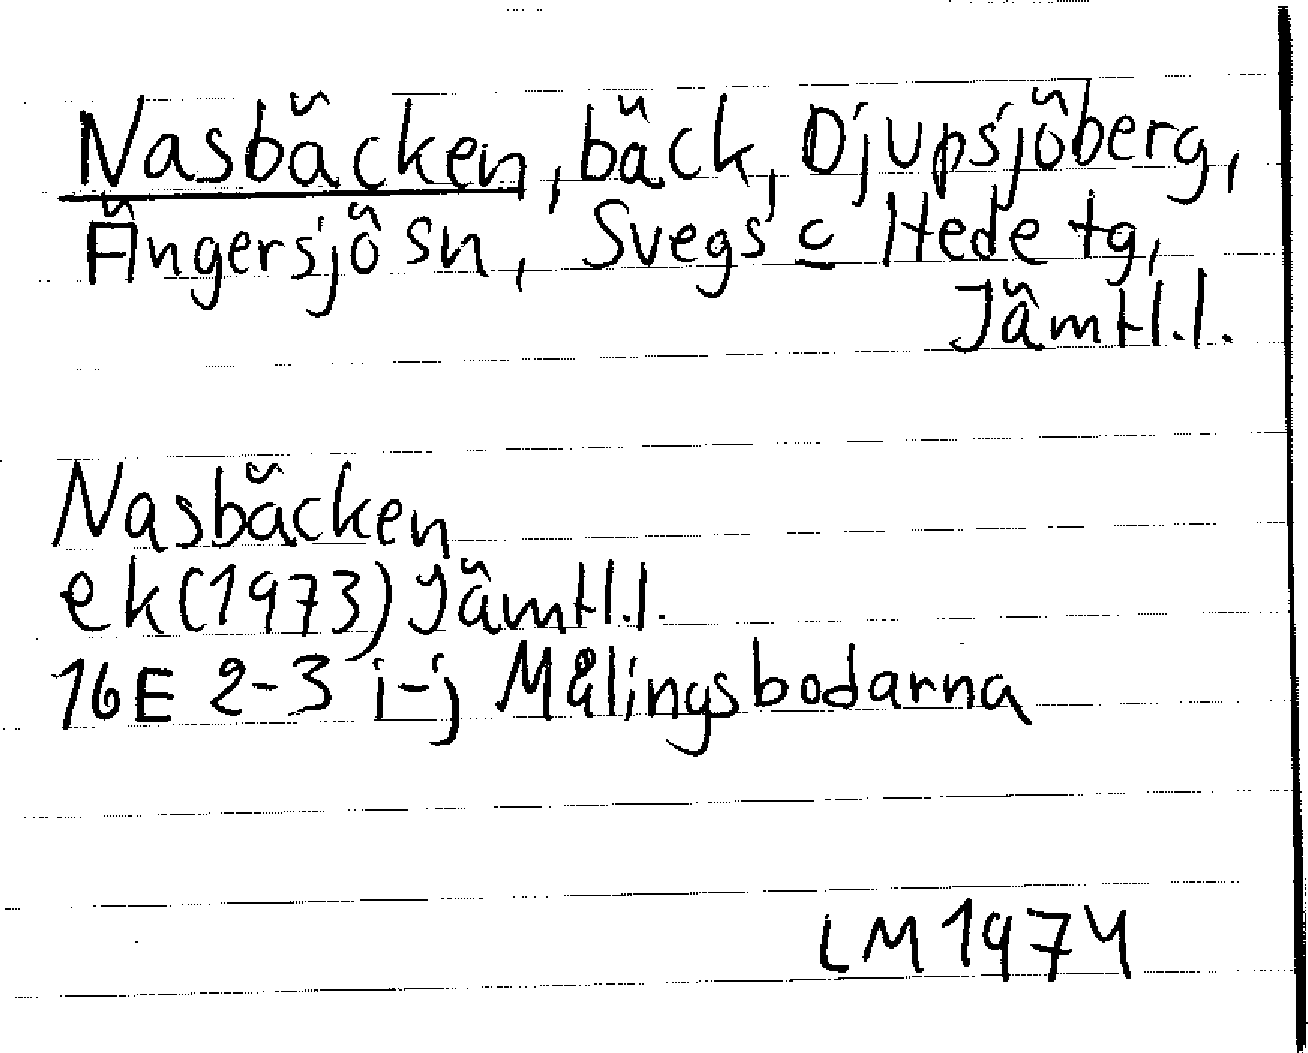 Nasbäcken, bäck, Djupsjöberg,
Ängersjö sn, Svegs c Hede tg,
Jämtl.l.
Nasbäcken
ek (1973) Jämtl.l.
16E 2-3 i-j Målingsbodarna
LM 1974